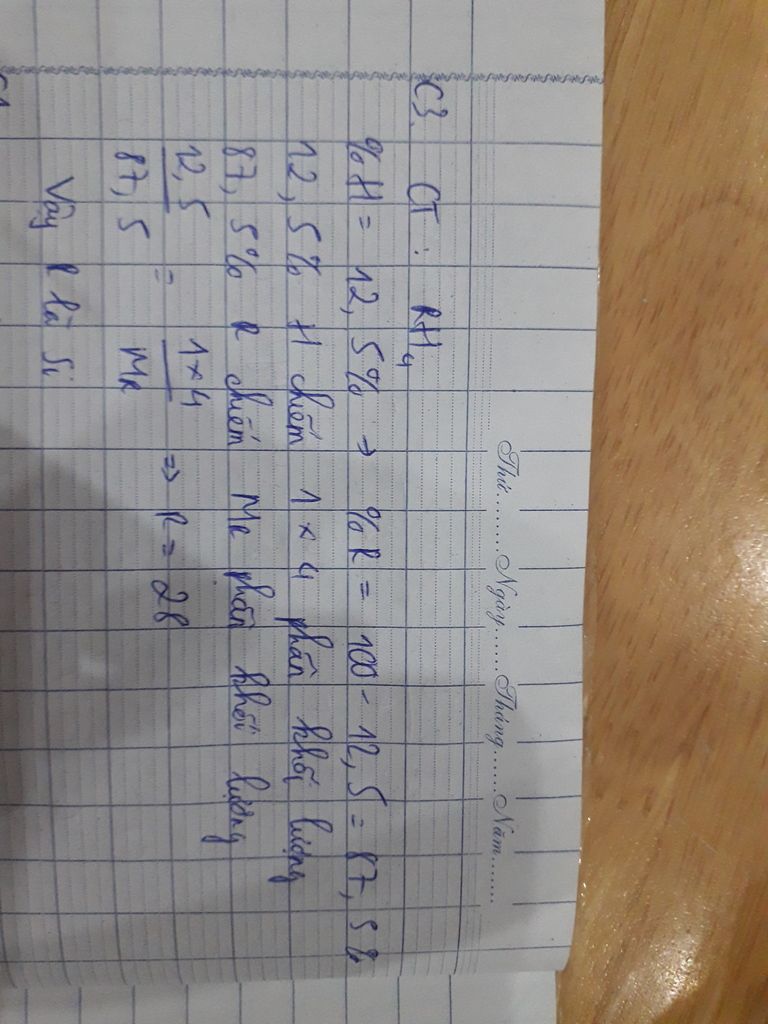 Thứ.......... Ngày....... Tháng....... Năm........
C3. CT : RH4
% H = 12,5% → % R = 100 - 12,5 = 87,5%
12,5% H chiếm 1 × 4 phần khối lượng
87,5% R chiếm MR phần khối lượng
12,5 / 87,5 = 1×4 / MR => R = 28
Vậy R là Si